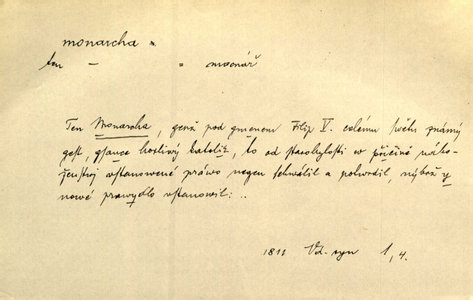 monarcha „
ten – „ mocnář
Ten Monarcha, genž pod gménem Filip V. celému swětu známý
gest, gsauce horliwý katolík, to od starobylosti w příčině nábo-
ženstwj vstanowené práwo negen schwálil a potwrdil, nýbrž y
nowé prawydlo vstanowil: ..
1811 Vd-syn 1, 4.